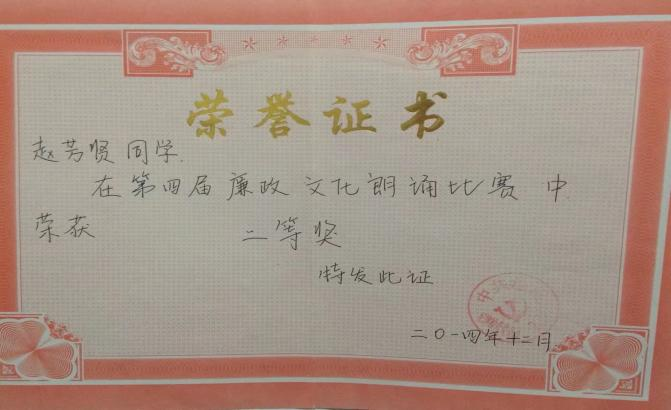 荣誉证书
赵芳贤同学
在第四届廉政文化朗诵比赛中
荣获 二等奖
特发此证
二〇一四年十二月